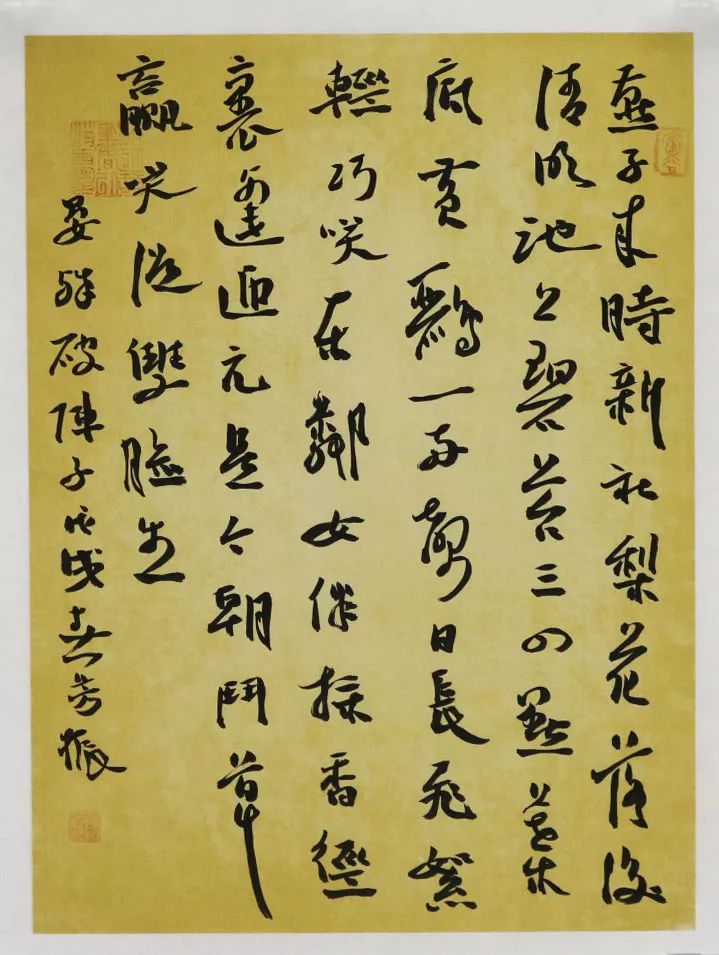 燕子來時新社梨花落後
清明池上碧苔三四點葉
底黃鸝一兩聲日長飛絮
輕巧笑東鄰女伴採香徑
裏逢迎元是今朝鬥草
贏笑從雙臉生
晏殊破陣子戊戌振